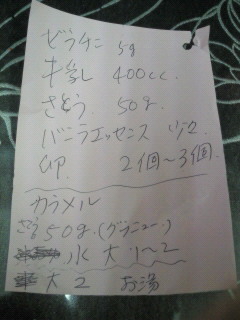 ゼラチン 5g
牛乳 400cc.
さとう. 50g.
バニラエッセンス
卵. 2個〜3個.
カラメル
さとう50g.(グラニュー.)
水 大 1〜2
大 2 お湯